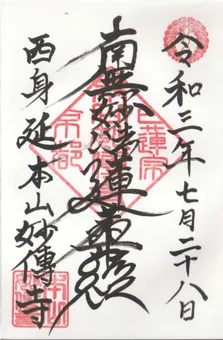 令和三年七月二十八日
南無妙法蓮華経
日蓮宗
京都
西身延本山妙傳寺